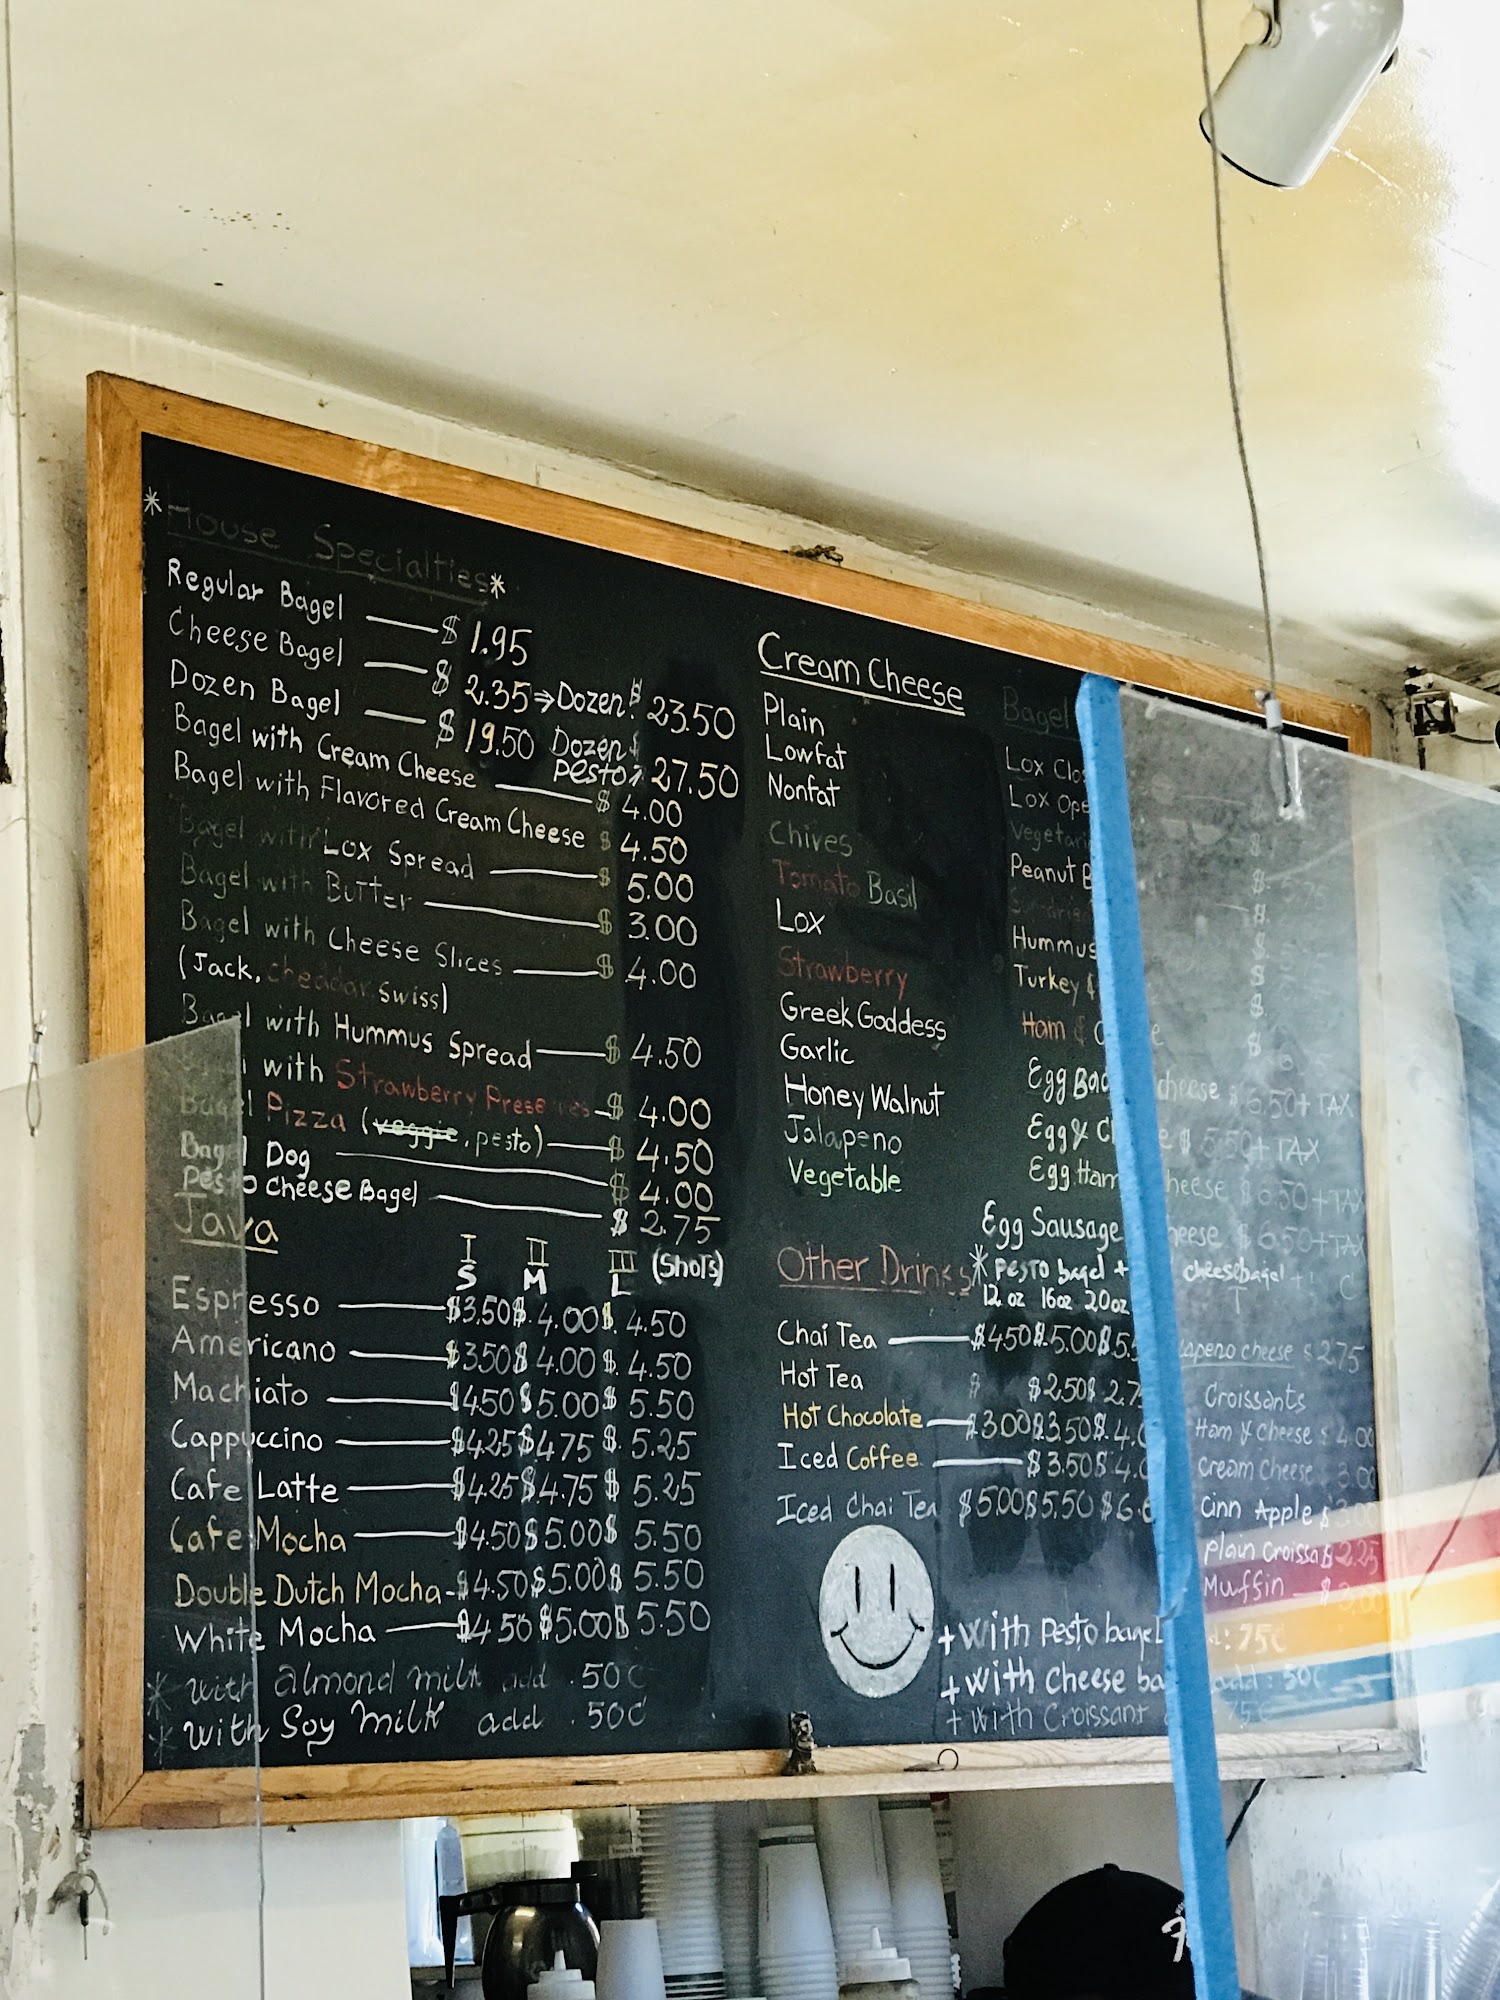 *House Specialties*
Regular Bagel $ 1.95
Cheese Bagel $ 2.35 ⇒ Dozen: $ 23.50
Dozen Bagel $ 19.50 Dozen pesto $ 27.50
Bagel with Cream Cheese $ 4.00
Bagel with Flavored Cream Cheese $ 4.50
Bagel with Lox Spread $ 5.00
Bagel with Butter $ 3.00
Bagel with Cheese Slices $ 4.00
(Jack, cheddar, swiss)
Bagel with Hummus Spread $ 4.50
with Strawberry Preserves $ 4.00
Bagel Pizza (veggie, pesto) $ 4.50
Bagel Dog $ 4.00
Pesto Cheese Bagel $ 2.75
Java
I II III (Shots)
S M L
Espresso $3.50 $ 4.00 $ 4.50
Americano $3.50 $ 4.00 $ 4.50
Machiato $4.50 $5.00 $ 5.50
Cappuccino $4.25 $4.75 $ 5.25
Cafe Latte $4.25 $4.75 $ 5.25
Cafe Mocha $4.50 $5.00 $ 5.50
Double Dutch Mocha $4.50 $5.00 $ 5.50
White Mocha $4.50 $5.00 $ 5.50
* with almond milk add .50¢
* with Soy Milk add .50¢
Cream Cheese
Plain
Lowfat
Nonfat
Chives
Tomato Basil
Lox
Strawberry
Greek Goddess
Garlic
Honey Walnut
Jalapeno
Vegetable
Bagel
Lox Clo
Lox Ope
Vegetari
Peanut B
Sundrie
Hummus
Turkey &
Ham & C e
Egg Bac cheese $ 6.50 + TAX
Egg & Ch e $ 5.50 + TAX
Egg Ham cheese $ 6.50 + TAX
Egg Sausage heese $ 6.50 + TAX
* pesto bagel + cheesebagel
Other Drinks
12 oz 16oz 20oz
Chai Tea $4.50 $5.00 $5.5
Hot Tea $ $2.50 $2.7
Hot Chocolate $3.00 $3.50 $4.0
Iced Coffee $3.50 $4.0
Iced Chai Tea $5.00 $5.50 $6.
apeno cheese $ 2.75
Croissants
Ham & Cheese $ 4.00
Cream Cheese $ 3.00
Cinn Apple $ 3.00
Plain Croissa $ 2.25
Muffin $ 3.00
+ with Pesto bagel d: 75¢
+ with cheese ba add: 50¢
+ with Croissant 75¢